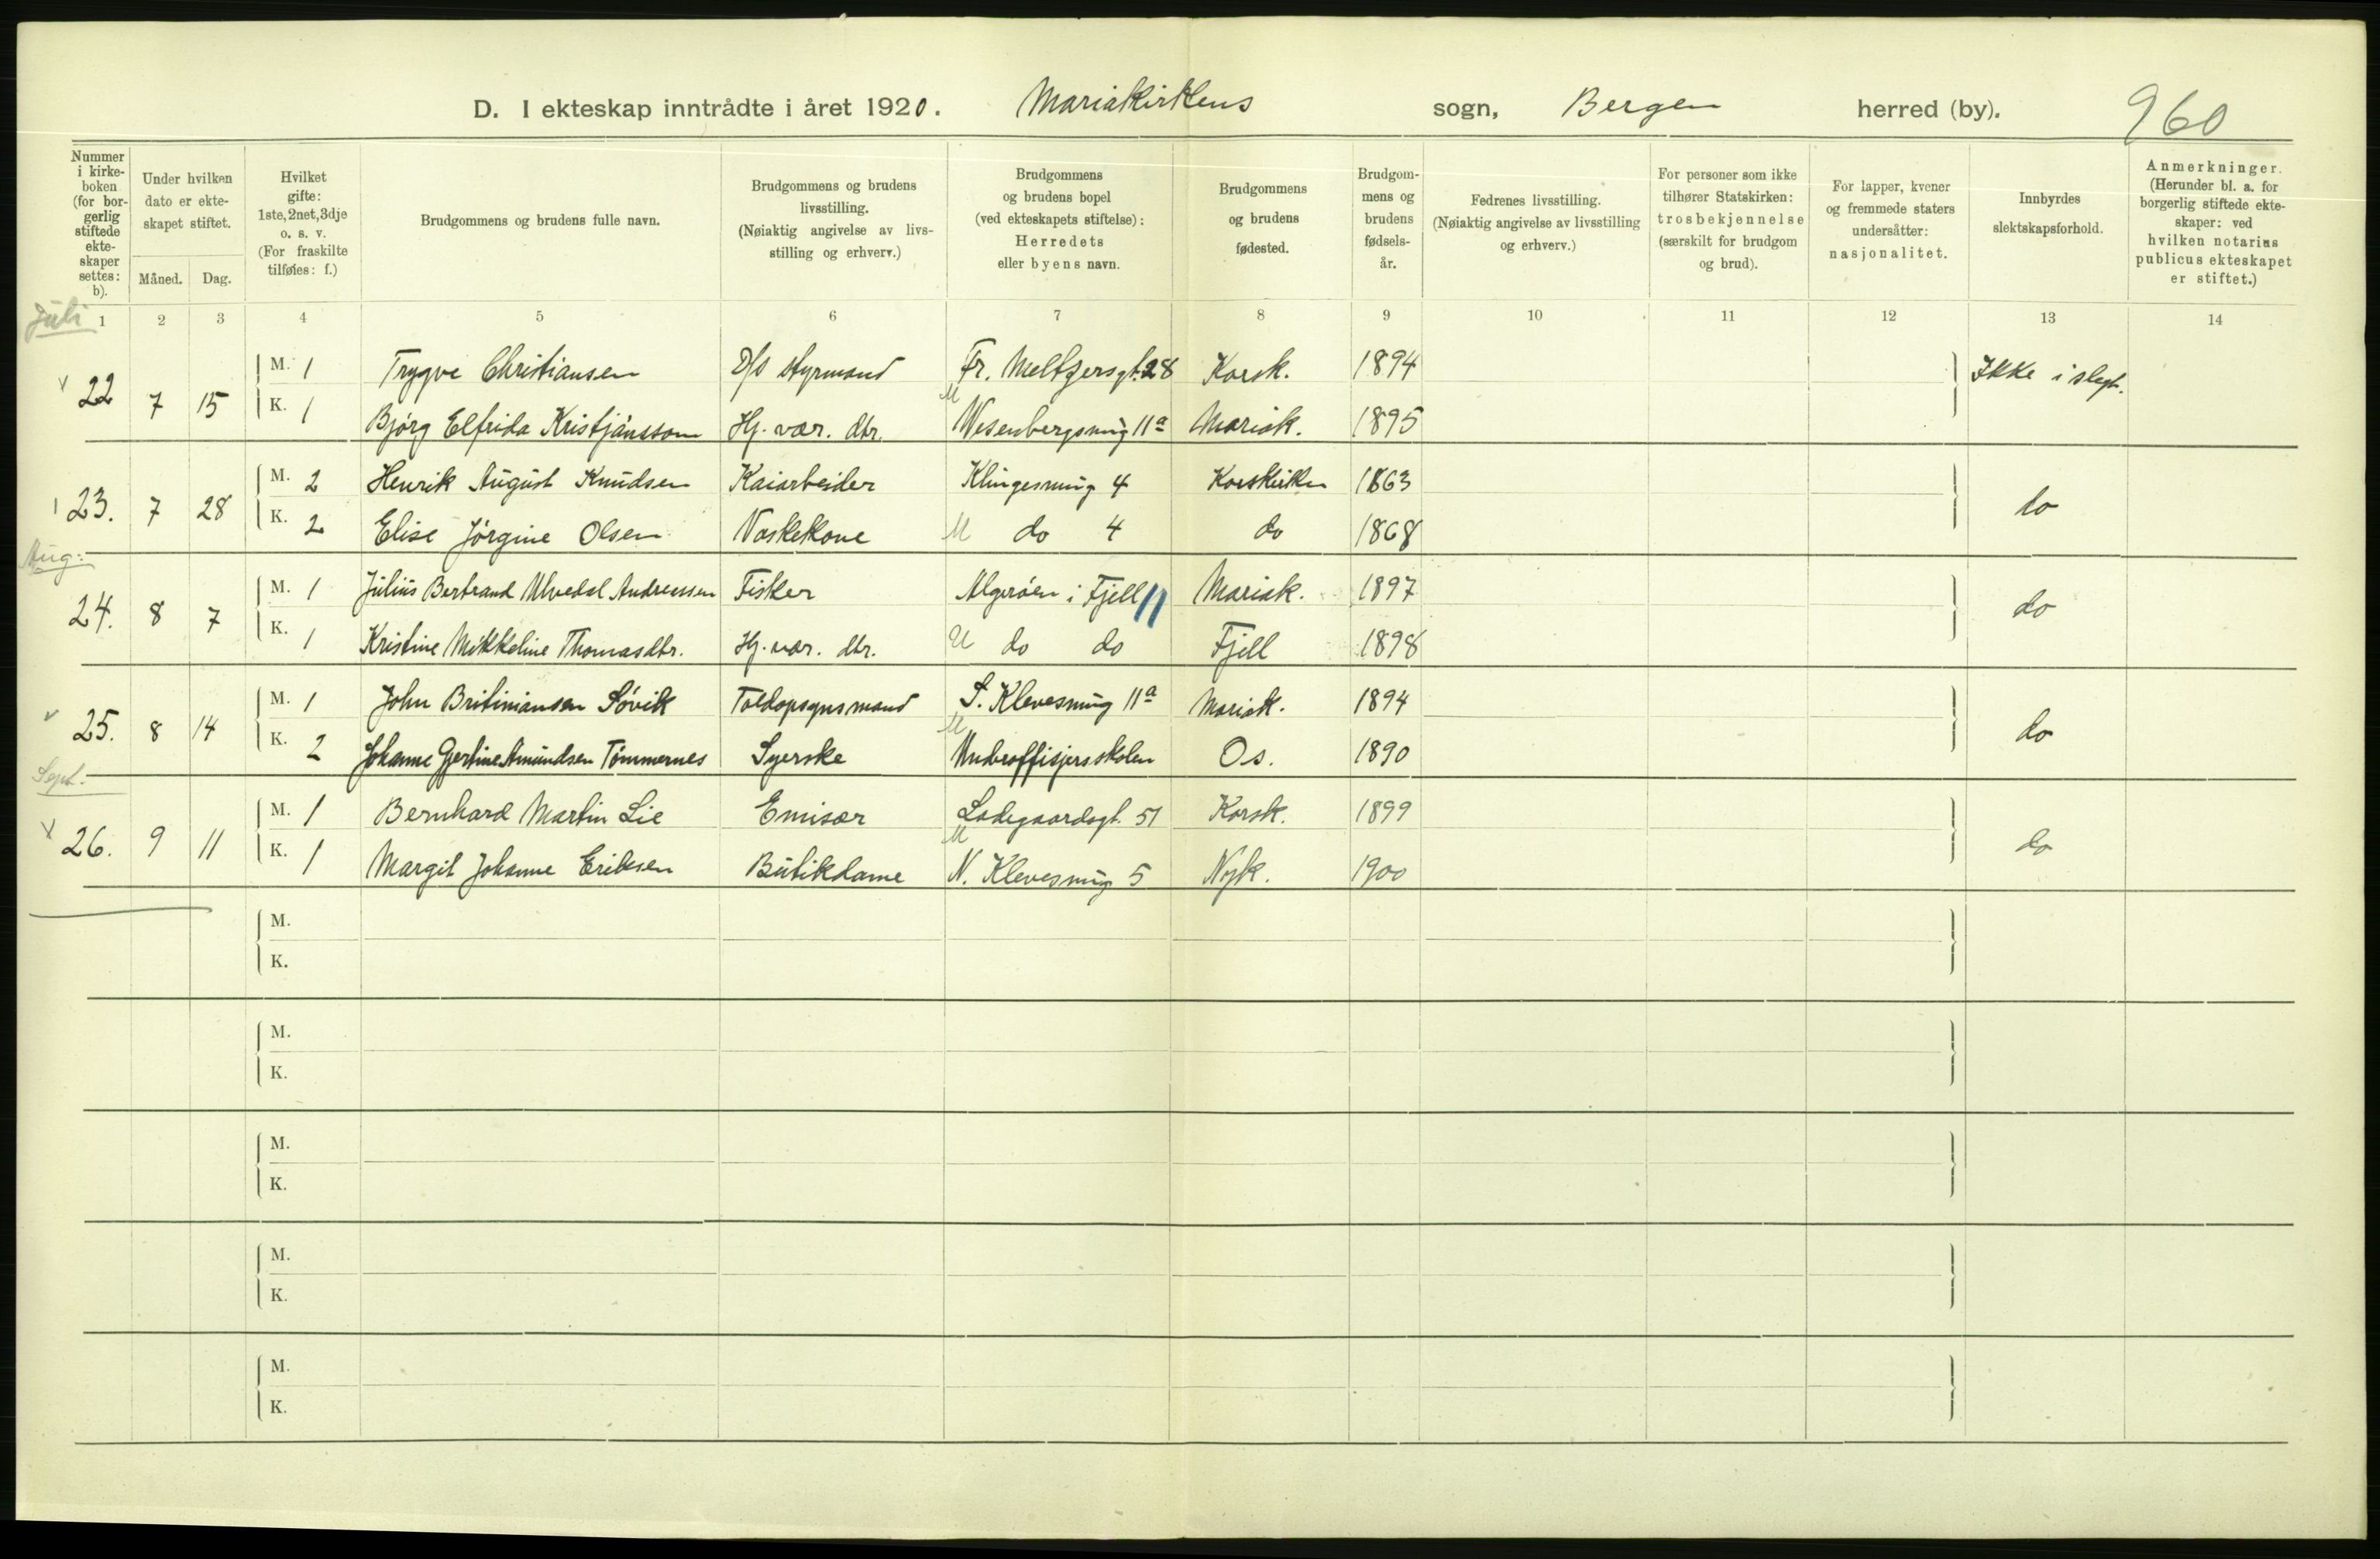 D. I ekteskap inntrådte i året 1920. Mariakirkens sogn, Bergen herred (by). 960
Nummer i kirke-boken (for bor-gerlig stiftede ekte-skaper settes: b).
Under hvilken dato er ekte-skapet stiftet.
Måned. Dag.
Hvilket gifte: 1ste, 2net, 3dje o. s. v. (For fraskilte tilføies: f.)
Brudgommens og brudens fulle navn.
Brudgommens og brudens livsstilling. (Nøiaktig angivelse av livs-stilling og erhverv.)
Brudgommens og brudens bopel (ved ekteskapets stiftelse): Herredets eller byens navn.
Brudgommens og brudens fødested.
Brudgom-mens og brudens fødsels-år.
Fedrenes livsstilling. (Nøiaktig angivelse av livsstilling og erhverv.)
For personer som ikke tilhører Statskirken: trosbekjennelse (særskilt for brudgom og brud).
For lapper, kvener og fremmede staters undersåtter: nasjonalitet.
Innbyrdes slektskapsforhold.
Anmerkninger. (Herunder bl. a. for borgerlig stiftede ekte-skaper: ved hvilken notarius publicus ekteskapet er stiftet.)
Juli 1 2 3 4 5 6 7 8 9 10 11 12 13 14
22 7 15 M. 1 Trygve Christiansen D/s styrmand Fr. Meltzersgt. 28 Korsk. 1894 Ikke i slegt.
K. 1 Bjórg Elfrida Kristjánsson Hj. vær. dtr. M Wesenbergsmug 11a Mariak. 1895
23. 7 28 M. 2 Henrik August Knudsen Kaiarbeider Klingesmug 4 Korskirken 1863 do
K. 2 Elise Jórgine Olsen Vaskekone M do 4 do 1868
Aug:
24. 8 7 M. 1 Julius Bertrand Ulvedal Andreassen Fisker Algeróen i Fjell 11 Mariak. 1897 do
K. 1 Kristine Mikkeline Thomasdtr. Hj. vær. dtr. U do do Fjell 1898
25. 8 14 M. 1 John Britiniansen Sóvik Toldopsynsmand S. Klevesmug 11a Mariak. 1894 do
K. 2 Johanne Gjertine Amundsen Tómmernes Syerske M Underoffisjersskolen Os. 1890
Sept.
26. 9 11 M. 1 Bernhard Martin Lie Emisær Ladegaardsgt. 51 Korsk. 1899 do
K. 1 Margit Johanne Eriksen Butikdame M N. Klevesmug 5 Nyk. 1900
M.
K.
M.
K.
M.
K.
M.
K.
M.
K.